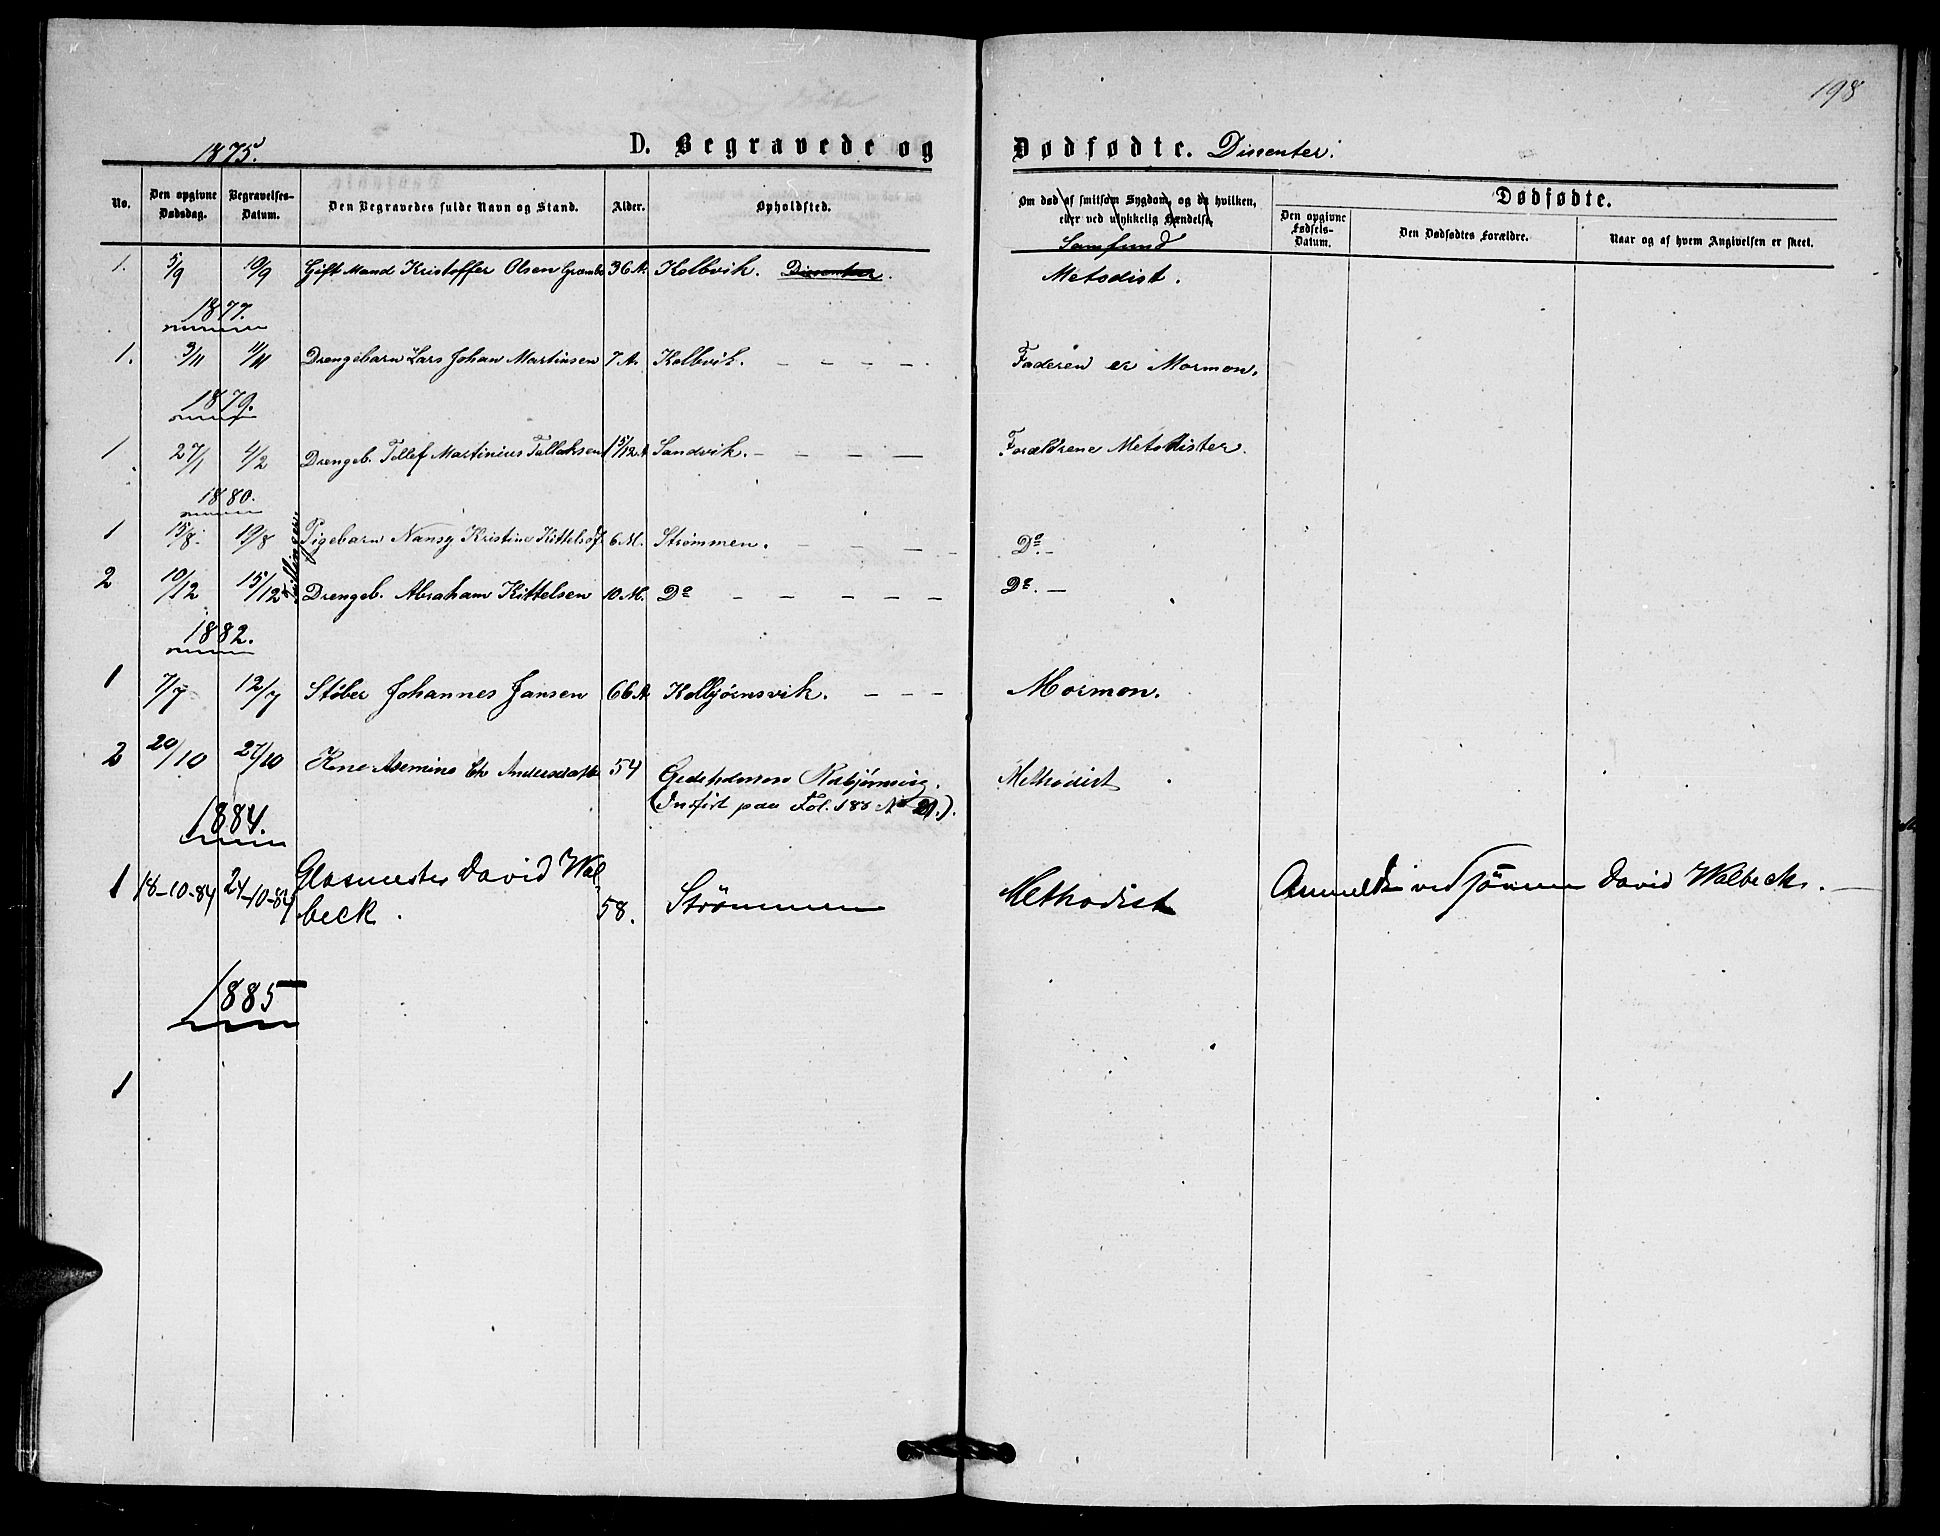 198
1875.
D. Begravede og Dødfødte. Dissenter.
No.
Den opgivne Dødsdag.
Begravelses-Datum.
Den Begravedes fulde Navn og Stand.
Alder.
Opholdsted.
Om død af smitsom Sygdom, og da hvilken, eller ved ulykkelig Hændelse.
Samfund
Dødfødte.
Den opgivne Fødsels-Datum.
Den Dødfødtes Forældre.
Naar og af hvem Angivelsen er skeet.
1. 5/9 10/9 Gift Mand Kristoffer Olsen 36 A. Kolbvik. Dissenter. Metodist.
1877.
1. 3/11 11/11 Drengebarn Lars Johan Martinsen 7 A. Kolbvik. - - - - - Faderen er Mormon.
1879.
1 27/1 4/2 Drengeb. Tellef Martinius Tallaksen 1 5/12 A Sandvik. - - - - Forældrene Metodister.
1880.
Tvillinger
1 15/8 19/8 Pigebarn Nansy Kristine Kittelsd 6 M. Strømmen. - - - - Do. -
2 10/12 15/12 Drengeb. Abraham Kittelsen 10 M. Do - - - - - Do. -
1882.
1 7/7 12/7 Støber Johannes Jansen 66 A. Kolbjørnsvik. - - - Mormon.
2 20/10 27/10 Kone Asemine Chr 54 Methodist
(Indført paa Fol. 188 No 21.).
1884.
1 18-10-84 24-10-84 Glasmester David Wal
beck. 58. Strømmen Methodist Anmeldt ved Sönnen David Walbeck. -
1885
1